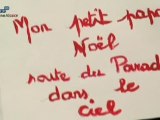 Mon petit papa
Noël
route du Paradis
dans le
ciel